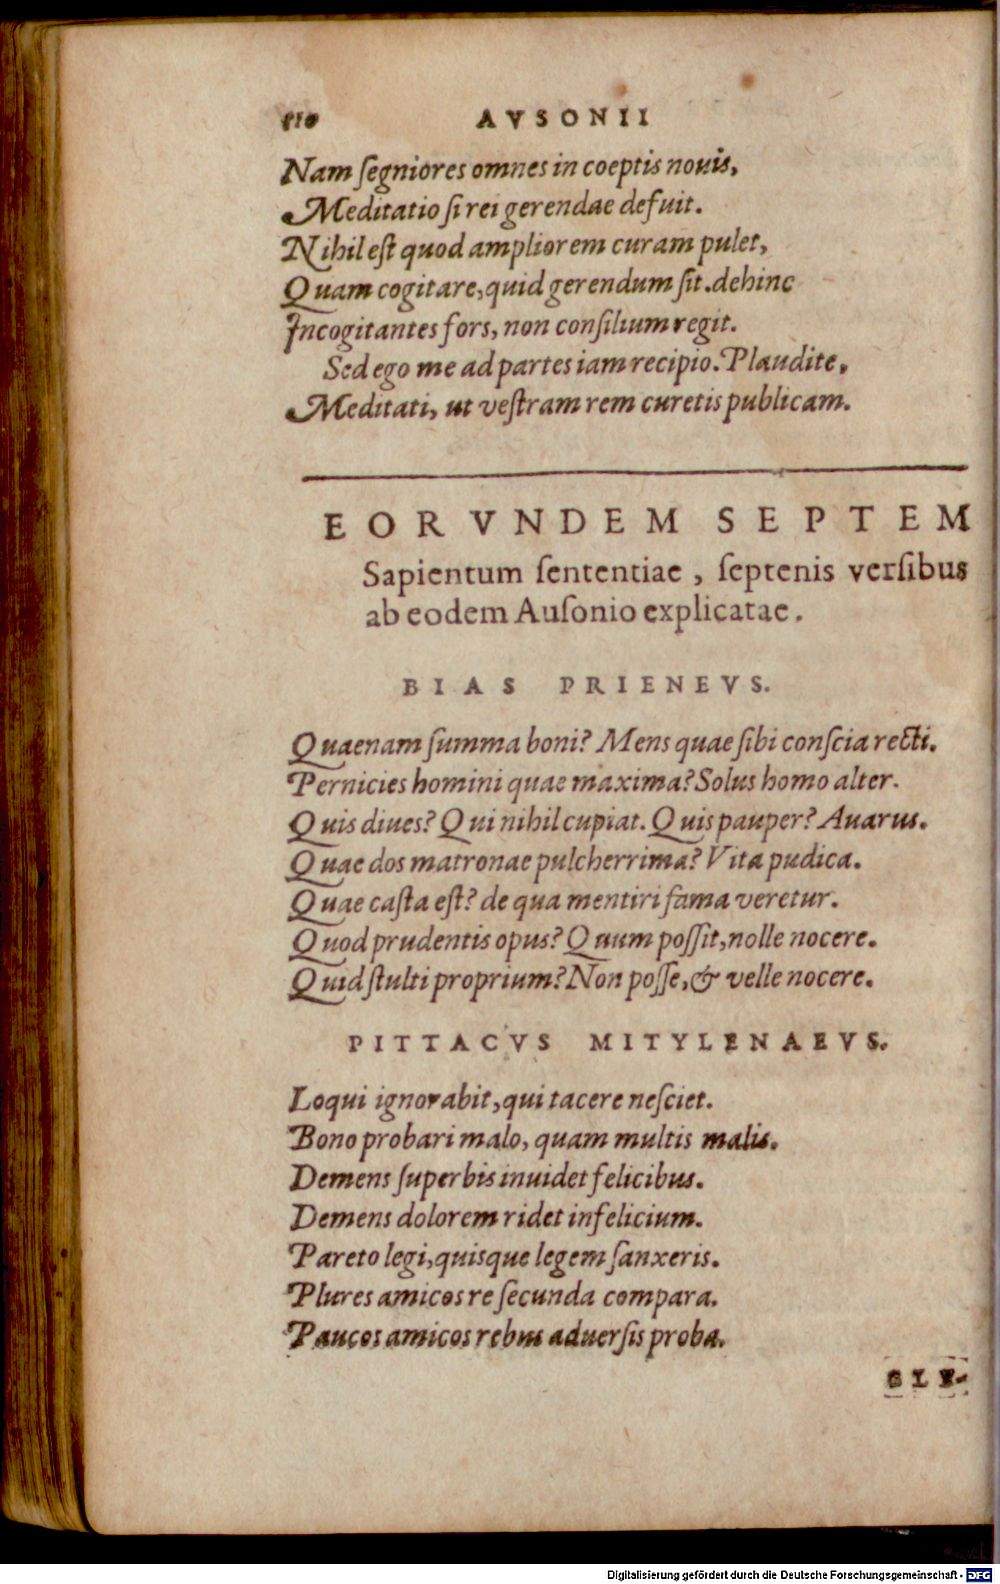 AVSONII
Nam ſegniores omnes in coeptis nouis,
Meditatio ſi rei gerendae defuit.
Nihil eſt quod ampliorem curam pulet,
Quam cogitare, quid gerendum ſit. dehinc
Incogitantes fors, non conſilium regit.
Sed ego me ad partes iam recipio. Plaudite,
Meditati, ut veſtram rem curetis publicam.
EORVNDEM SEPTEM
Sapientum ſententiae, ſeptenis verſibus
ab eodem Auſonio explicatae.
BIAS PRIENEVS.
Quaenam ſumma boni? Mens quae ſibi conſcia recti.
Pernicies homini quae maxima? Solus homo alter.
Quis diues? Qui nihil cupiat. Quis pauper? Auarus.
Quae dos matronae pulcherrima? Vita pudica.
Quae caſta eſt? de qua mentiri fama veretur.
Quod prudentis opus? Quum poſſit, nolle nocere.
Quid ſtulti proprium? Non poſſe, & velle nocere.
PITTACVS MITYLENAEVS.
Loqui ignorabit, qui tacere neſciet.
Bono probari malo, quam multis malis.
Demens ſuperbis inuidet felicibus.
Demens dolorem ridet infelicium.
Pareto legi, quisque legem ſanxeris.
Plures amicos re ſecunda compara.
Paucos amicos rebus aduerſis proba.
CLE-
Digitalisierung gefördert durch die Deutsche Forschungsgemeinschaft - DFG